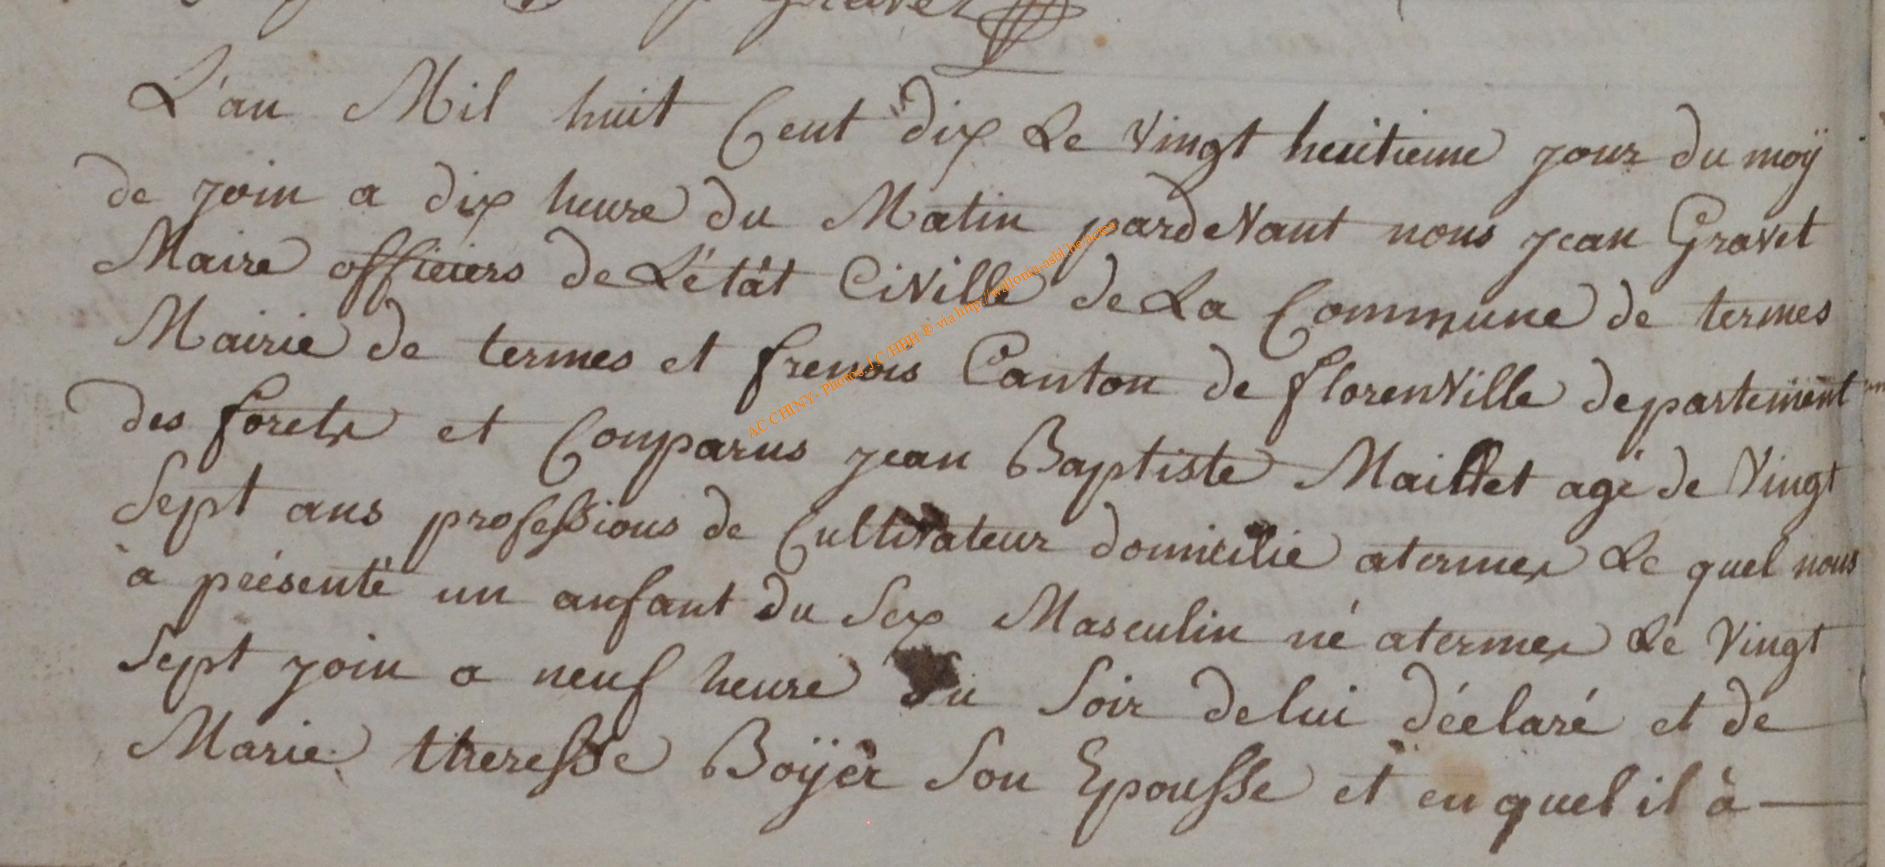 L'an Mil huit Cent dix Le Vingt huitieme jour du moÿ
de join a dix heure du Matin pardeVant nous jean Gravet
Maire officiers de L'état CiVille de La Commune de termes
Mairie de termes et frenois Canton de florenVille departement
des forets et Comparus jean Baptiste Maillet agé de Vingt
Sept ans professions de CultiVateur domicilié a termes Le quel nous
à présenté un anfant du Sex Masculin né a termes Le Vingt
Sept join a neuf heure du Soir de lui déclaré et de
Marie theresse Boÿer Son Epousse et en quel il à
AC CHINY- Photos J.C.HBH © via http://wallonia-asbl.be/actes